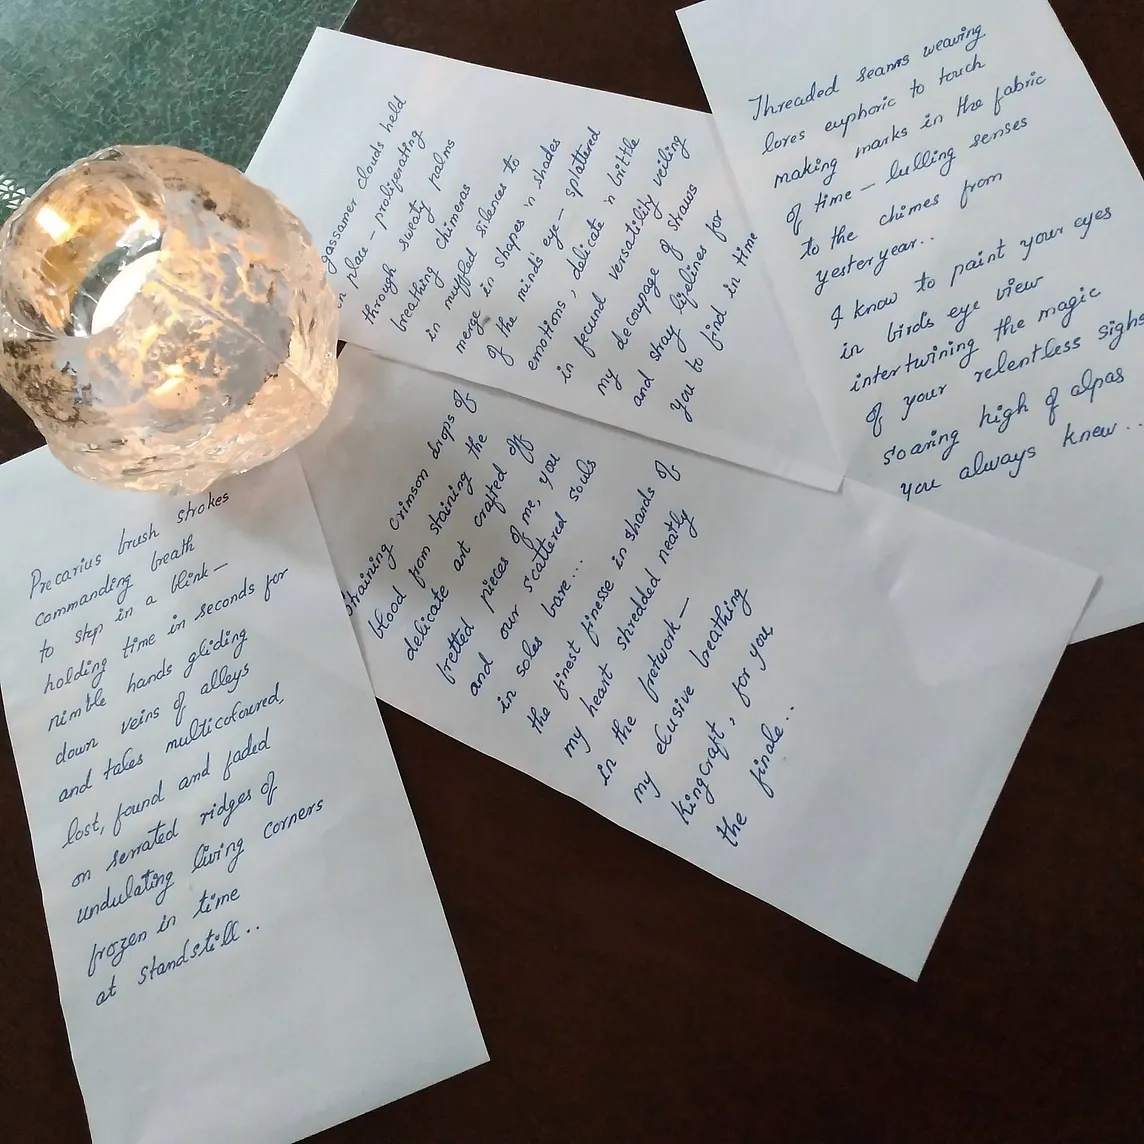 Precarius brush strokes
commanding breath
to stop in a blink —
holding time in seconds for
nimble hands gliding
down veins of alleys
and tales multicoloured,
lost, found and faded
on serrated ridges of
undulating living corners
frozen in time
at standstill..
gassamer clouds held
in place — proliferating
through sweaty palms
breathing chimeras
in muffled silences to
merge in shapes 'n shades
of the mind's eye — splattered
emotions, delicate 'n brittle
in fecund versatility veiling
my decoupage of straws
and stray lifelines for
you to find in time
straining crimson drops of
blood from staining the
delicate art crafted off
fretted pieces of me, you
and our scattered souls
in soles bare...
the finest finesse in shards of
my heart shredded neatly
in the fretwork —
my elusive breathing
kingcraft, for you,
the finale...
Threaded seams weaving
lores euphoric to touch
making marks in the fabric
of time — lulling senses
to the chimes from
yesteryear..
I know to paint your eyes
in bird's eye view
intertwining the magic
of your relentless sighs
soaring high of alpas
you always knew...